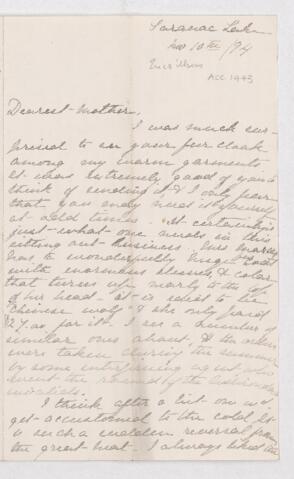 Saranac Lake
Nov 10th /94
ACC 1993
Dearest Mother,
I was much sur-
prised to see your fur cloak
among my warm garments
It was extremely good of you to
think of sending it & I only fear
that you may need it yourself
at odd times. It certainly is
just what one needs in this
sitting out business. Mrs
has a wonderfully huge coat
with enormous sleeves, & collar
that turns up nearly to the top
of her head. It is said to be
"Chinese wolf" & she only paid
for it. I see a number of
similar ones about, & the orders
were taken during the summer
by some enterprising agent who
went the rounds of the Adirondac
I think after a bit one will
get accustomed to the cold. It
is such a sudden reversal from
the great heat. I always liked the